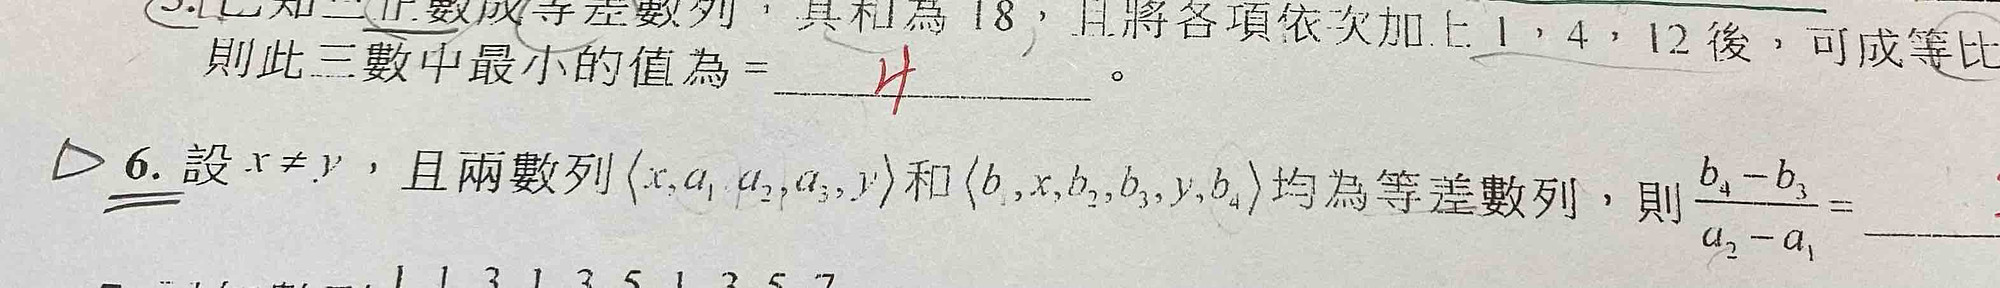 5.已知三正數成等差數列，其和為 18，且將各項依次加上 1，4，12 後，可成等比
則此三數中最小的值為 = 4 。
6. 設 x ≠ y，且兩數列⟨x, a₁, a₂, a₃, y⟩和⟨b₁, x, b₂, b₃, y, b₄⟩均為等差數列，則 (b₄ − b₃)/(a₂ − a₁) =
1 1 3 1 3 5 1 3 5 7